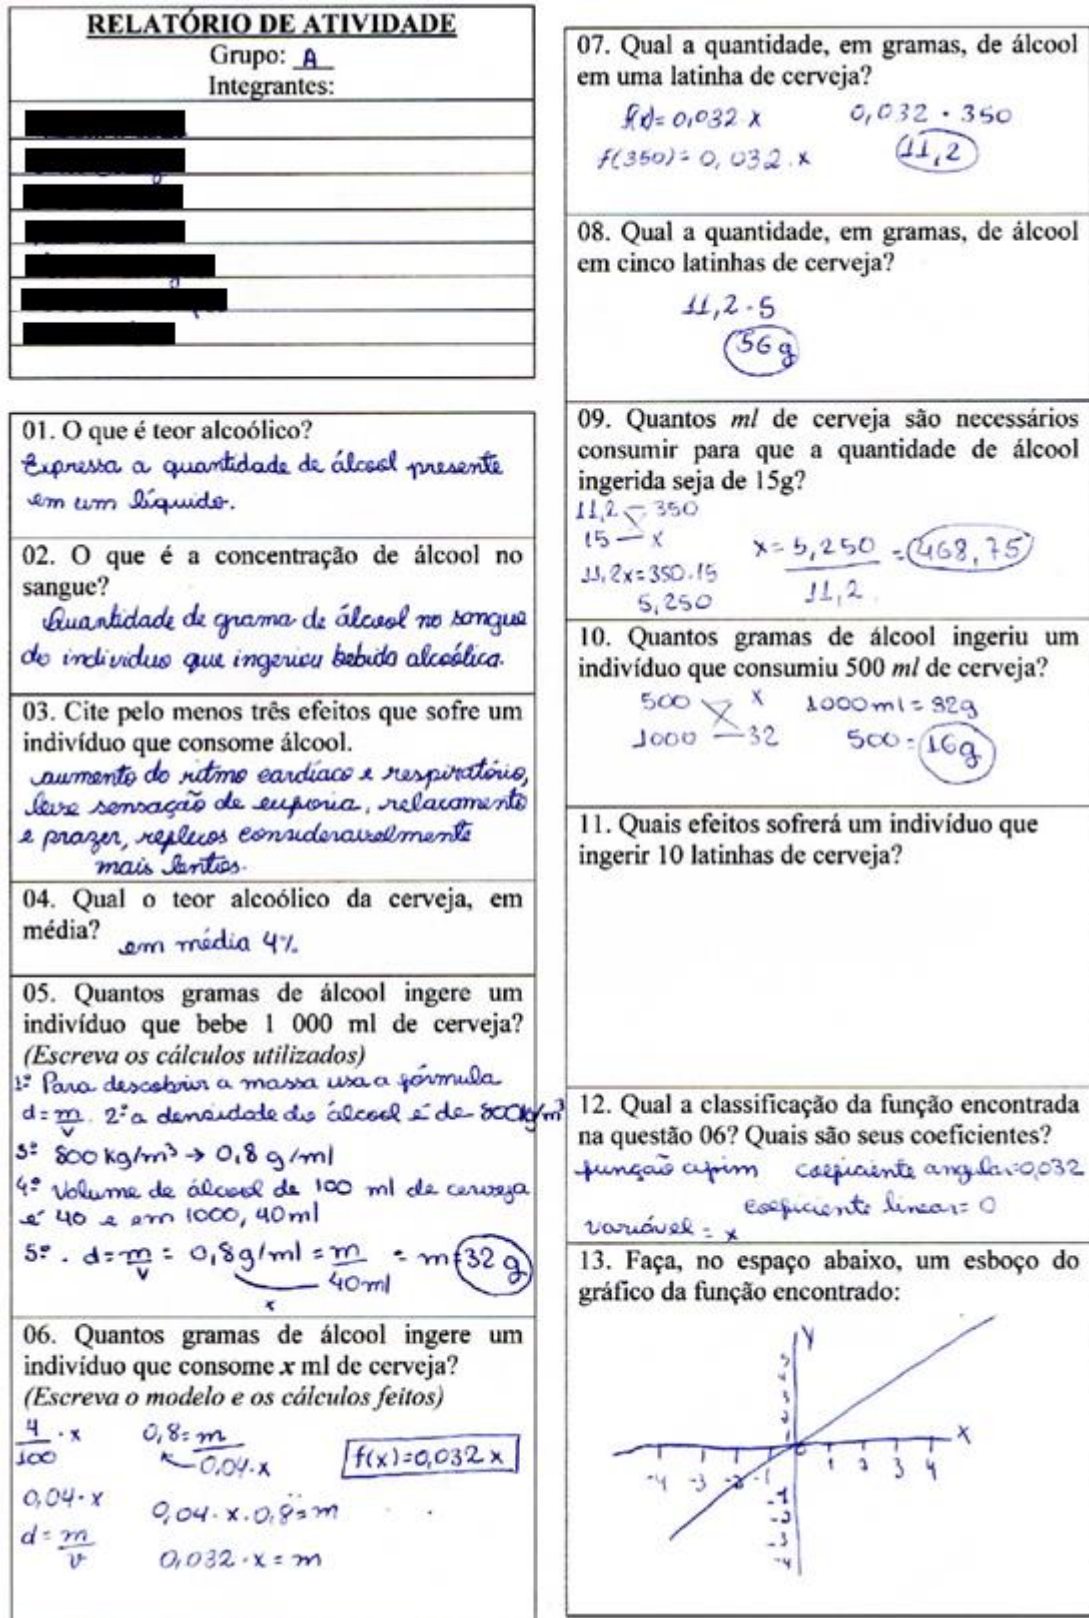 RELATÓRIO DE ATIVIDADE
Grupo: A
Integrantes:
01. O que é teor alcoólico?
Expressa a quantidade de álcool presente
em um líquido.
02. O que é a concentração de álcool no
sangue?
Quantidade de grama de álcool no sangue
do individuo que ingeriu bebida alcoólica.
03. Cite pelo menos três efeitos que sofre um
indivíduo que consome álcool.
aumento do ritmo cardíaco e respiratório,
leve sensação de euforia, relaxamento
e prazer, reflexos consideravelmente
mais lentos.
04. Qual o teor alcoólico da cerveja, em
média? em média 4%
05. Quantos gramas de álcool ingere um
indivíduo que bebe 1 000 ml de cerveja?
(Escreva os cálculos utilizados)
1º Para descobrir a massa usa a fórmula
d = m/v . 2º a densidade do álcool é de 800kg/m³
3º 800 kg/m³ → 0,8 g/ml
4º Volume de álcool de 100 ml de cerveja
é 40 e em 1000, 40ml
5º . d = m/v = 0,8g/ml = m/40ml = m=32 g
x
06. Quantos gramas de álcool ingere um
indivíduo que consome x ml de cerveja?
(Escreva o modelo e os cálculos feitos)
4/100 · x 0,8 = m/0,04·x f(x)=0,032 x
0,04·x 0,04·x·0,8=m
d = m/v 0,032·x = m
07. Qual a quantidade, em gramas, de álcool
em uma latinha de cerveja?
f(x)=0,032 x 0,032 · 350
f(350)=0,032.x 11,2
08. Qual a quantidade, em gramas, de álcool
em cinco latinhas de cerveja?
11,2 · 5
56 g
09. Quantos ml de cerveja são necessários
consumir para que a quantidade de álcool
ingerida seja de 15g?
11,2 — 350
15 — x x = 5,250/11,2 = 468,75
11,2x=350.15
5,250
10. Quantos gramas de álcool ingeriu um
indivíduo que consumiu 500 ml de cerveja?
500 x 1000ml = 32g
1000 — 32 500 = 16g
11. Quais efeitos sofrerá um indivíduo que
ingerir 10 latinhas de cerveja?
12. Qual a classificação da função encontrada
na questão 06? Quais são seus coeficientes?
função afim coeficiente angular=0,032
coeficiente linear= 0
variável = x
13. Faça, no espaço abaixo, um esboço do
gráfico da função encontrado:
y
x
-4 -3 -2 -1 0 1 2 3 4
-1
-2
-3
-4